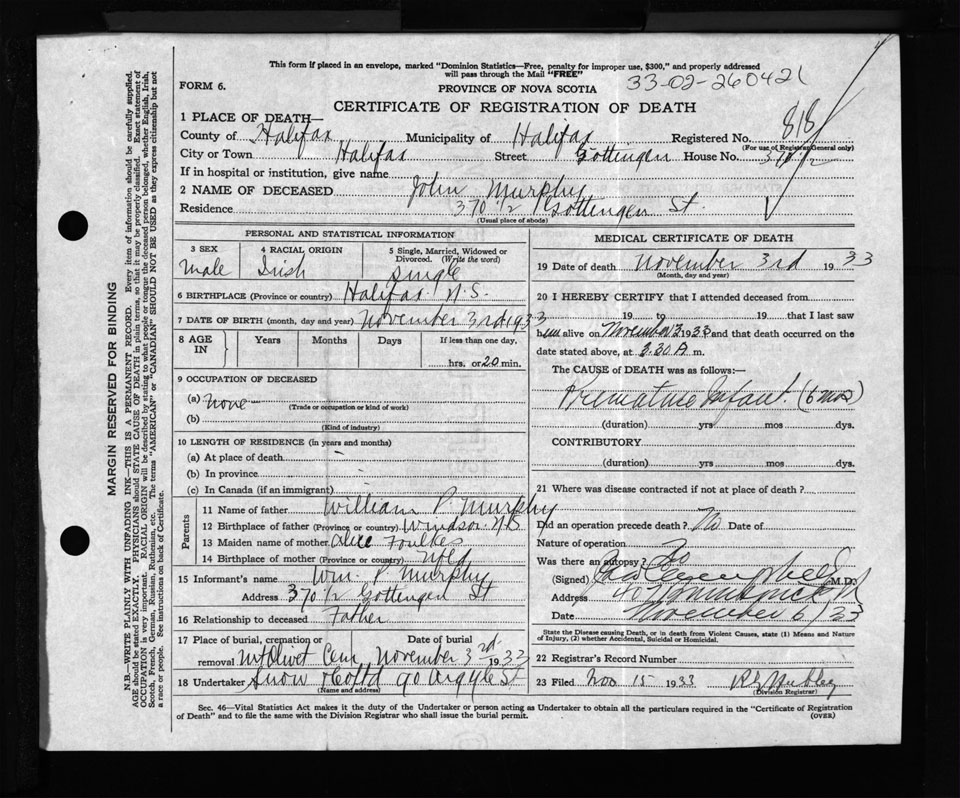 This form if placed in an envelope, marked "Dominion Statistics—Free, penalty for improper use, $300," and properly addressed
will pass through the Mail "FREE"
33-02-260421
FORM 6.
PROVINCE OF NOVA SCOTIA
CERTIFICATE OF REGISTRATION OF DEATH
1 PLACE OF DEATH—
County of Halifax Municipality of Halifax Registered No. 818
(For use of Registrar General only)
City or Town Halifax Street Gottingen House No. 370 1/2
If in hospital or institution, give name
2 NAME OF DECEASED John Murphy
Residence 370 1/2 Gottingen St.
(Usual place of abode)
PERSONAL AND STATISTICAL INFORMATION
3 SEX 4 RACIAL ORIGIN 5 Single, Married, Widowed or
Divorced. (Write the word)
Male Irish single
6 BIRTHPLACE (Province or country) Halifax N.S.
7 DATE OF BIRTH (month, day and year) November 3rd 1933
8 AGE IN Years Months Days If less than one day,
hrs. or 20 min.
9 OCCUPATION OF DECEASED
(a) None
(Trade or occupation or kind of work)
(b)
(Kind of industry)
10 LENGTH OF RESIDENCE (in years and months)
(a) At place of death
(b) In province
(c) In Canada (if an immigrant)
Parents
11 Name of father William P. Murphy
12 Birthplace of father (Province or country) Windsor N.S
13 Maiden name of mother Alice Foulkes
14 Birthplace of mother (Province or country) Nfld
15 Informant's name Wm. P Murphy
Address 370 1/2 Gottingen St
16 Relationship to deceased Father
17 Place of burial, cremation or Date of burial
removal Mt Olivet Cem November 3rd 1933
18 Undertaker Snow & Co Ltd 90 Argyle St
(Name and address)
MEDICAL CERTIFICATE OF DEATH
19 Date of death November 3rd 1933
(Month, day and year)
20 I HEREBY CERTIFY that I attended deceased from
19 to 19 that I last saw
him alive on November 3 1933 and that death occurred on
date stated above, at 3.30 A m.
The CAUSE of DEATH was as follows:—
Premature Infant. (6 mos)
(duration) yrs mos dys.
CONTRIBUTORY
(duration) yrs. mos. dys.
21 Where was disease contracted if not at place of death?
Did an operation precede death? No Date of
Nature of operation
Was there an autopsy? No
(Signed) Campbell M.D.
Address
Date November 6/33
State the Disease causing Death, or in death from Violent Causes, state (1) Means and Nature
of Injury, (2) whether Accidental, Suicidal or Homicidal.
22 Registrar's Record Number
23 Filed Nov 15 1933
(Division Registrar)
Sec. 46—Vital Statistics Act makes it the duty of the Undertaker or person acting as Undertaker to obtain all the particulars required in the "Certificate of Registration
of Death" and to file the same with the Division Registrar who shall issue the burial permit.
(OVER)
MARGIN RESERVED FOR BINDING
N.B.—WRITE PLAINLY WITH UNFADING INK—THIS IS A PERMANENT RECORD. Every item of information should be carefully supplied.
AGE should be stated EXACTLY. PHYSICIANS should STATE CAUSE OF DEATH in plain terms, so that it may be properly classified. Exact statement of
OCCUPATION is very important. RACIAL ORIGIN will be described by stating to what people or tongue the deceased person belonged, whether English, Irish,
Scotch, French, German, Russian, Ruthenian, etc. The terms "AMERICAN" or "CANADIAN" SHOULD NOT BE USED as they express citizenship but not
a race or people. See instructions on back of Certificate.